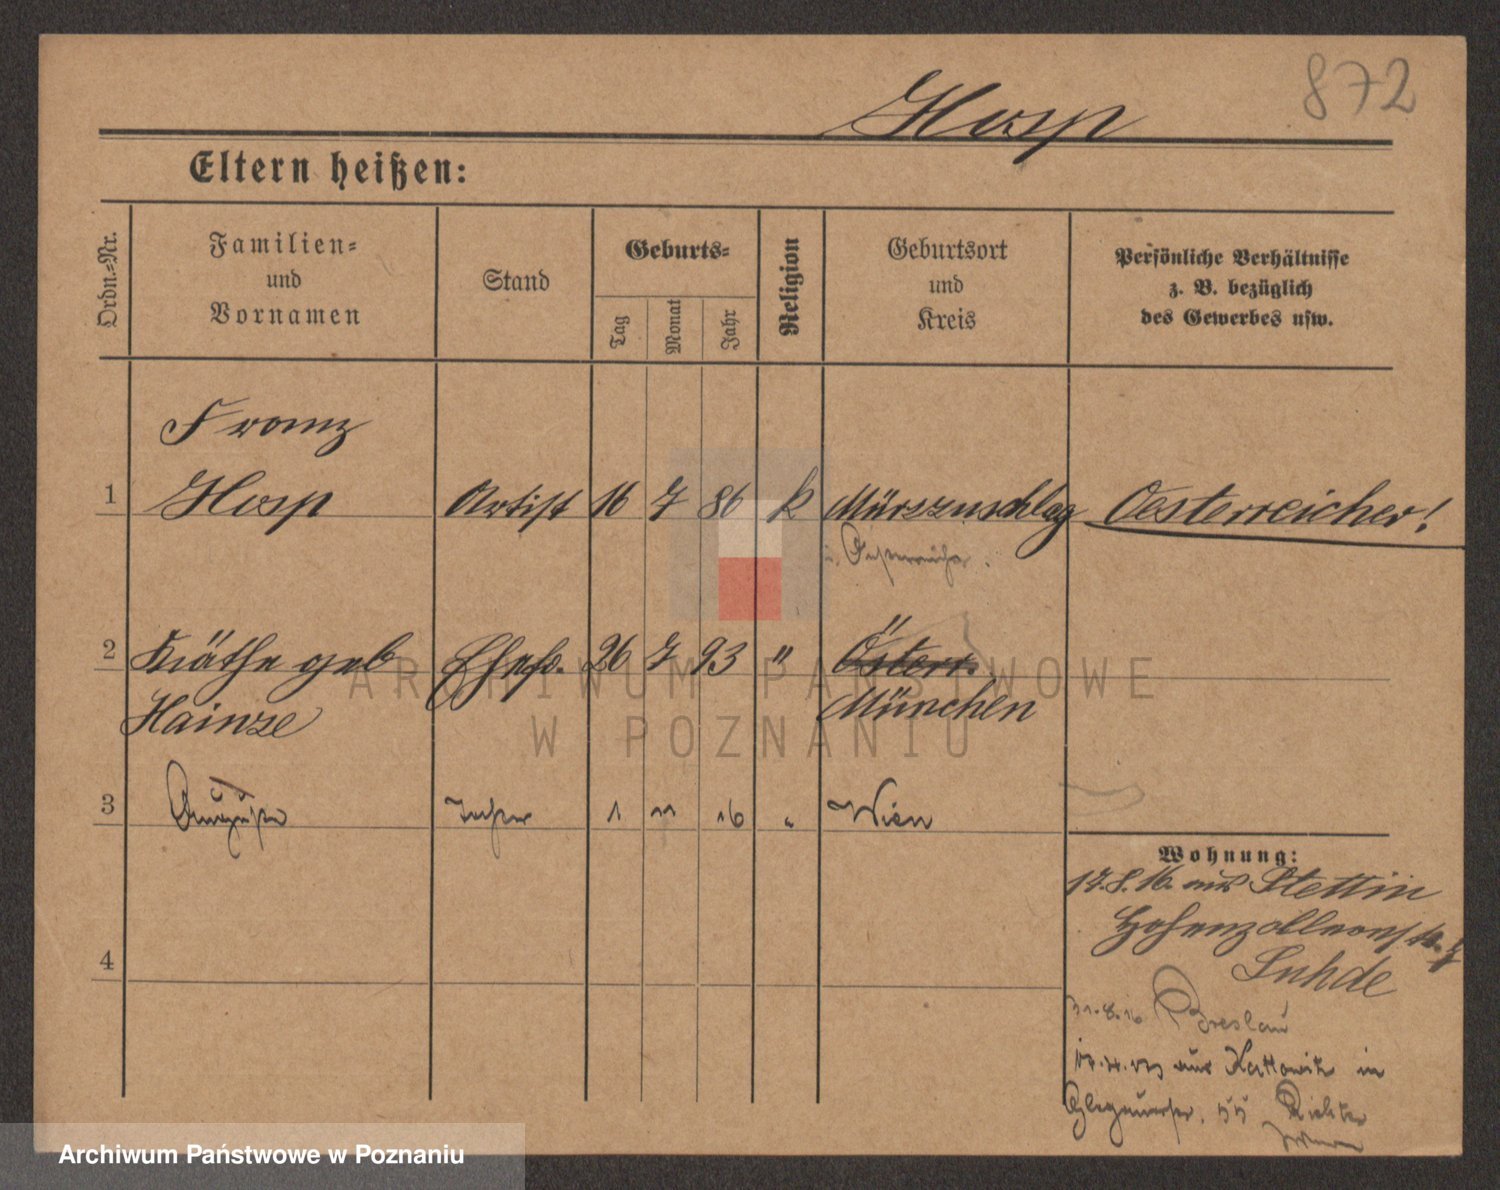 872
Hosp
Eltern heißen:
Ordn.=Nr.
Familien=
und
Vornamen
Stand
Geburts=
Tag
Monat
Jahr
Religion
Geburtsort
und
Kreis
Persönliche Verhältnisse
z. B. bezüglich
des Gewerbes usw.
Franz
1 Hosp Artist 16 7 86 k Mürzzuschlag Oesterreicher!
2 Käthe geb Ehefr. 26 7 93 " Österr.
Hainze München
3 Auguste 1 11 16 " Wien
4
Wohnung:
17.8.16. aus Stettin
Hohenzollernstr.
Luhde
31.8.16 Breslau
aus Kattowitz in
Glogauerstr. 55 Richter
ARCHIWUM PAŃSTWOWE
W POZNANIU
Archiwum Państwowe w Poznaniu